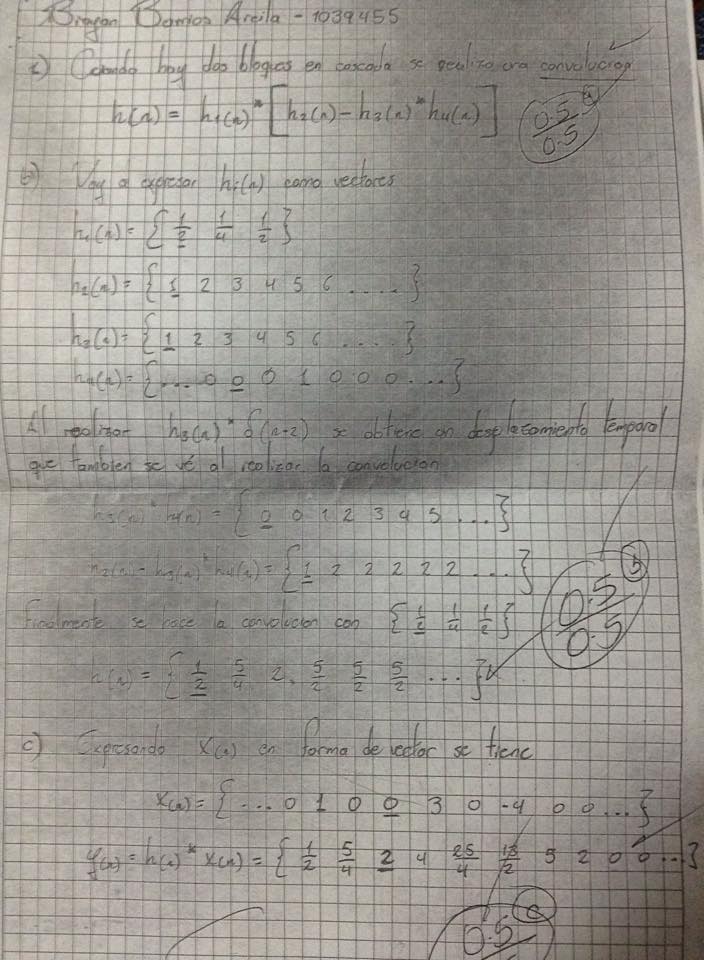 Brayan Barrios Arcila - 1039455
a) Cuando hay dos bloques en cascada se realiza una convolucion
h(n) = h₁(n) * [h₂(n) - h₃(n) * h₄(n)]
a
0.5
0.5
b) Voy a expresar hᵢ(n) como vectores
h₁(n) = { 1/2 1/4 1/2 }
h₂(n) = { 1 2 3 4 5 6 .... }
h₃(n) = { 1 2 3 4 5 6 .... }
h₄(n) = { ... 0 0 0 1 0 0 0 ... }
Al realizar h₃(n) * δ(n-2) se obtiene un desplazamiento temporal
que tambien se vé al realizar la convolucion
h₃(n) * h₄(n) = { 0 0 1 2 3 4 5 ... }
h₂(n) - h₃(n) * h₄(n) = { 1 2 2 2 2 2 ... }
b
0.5
0.5
Finalmente se hace la convolucion con { 1/2 1/4 1/2 }
h(n) = { 1/2 5/4 2, 5/2 5/2 5/2 ... }
c) Expresando x(n) en forma de vector se tiene
x(n) = { ... 0 1 0 0 3 0 -4 0 0 ... }
y(n) = h(n) * x(n) = { 1/2 5/4 2 4 25/4 13/2 5 2 0 0 ... }
c
0.5